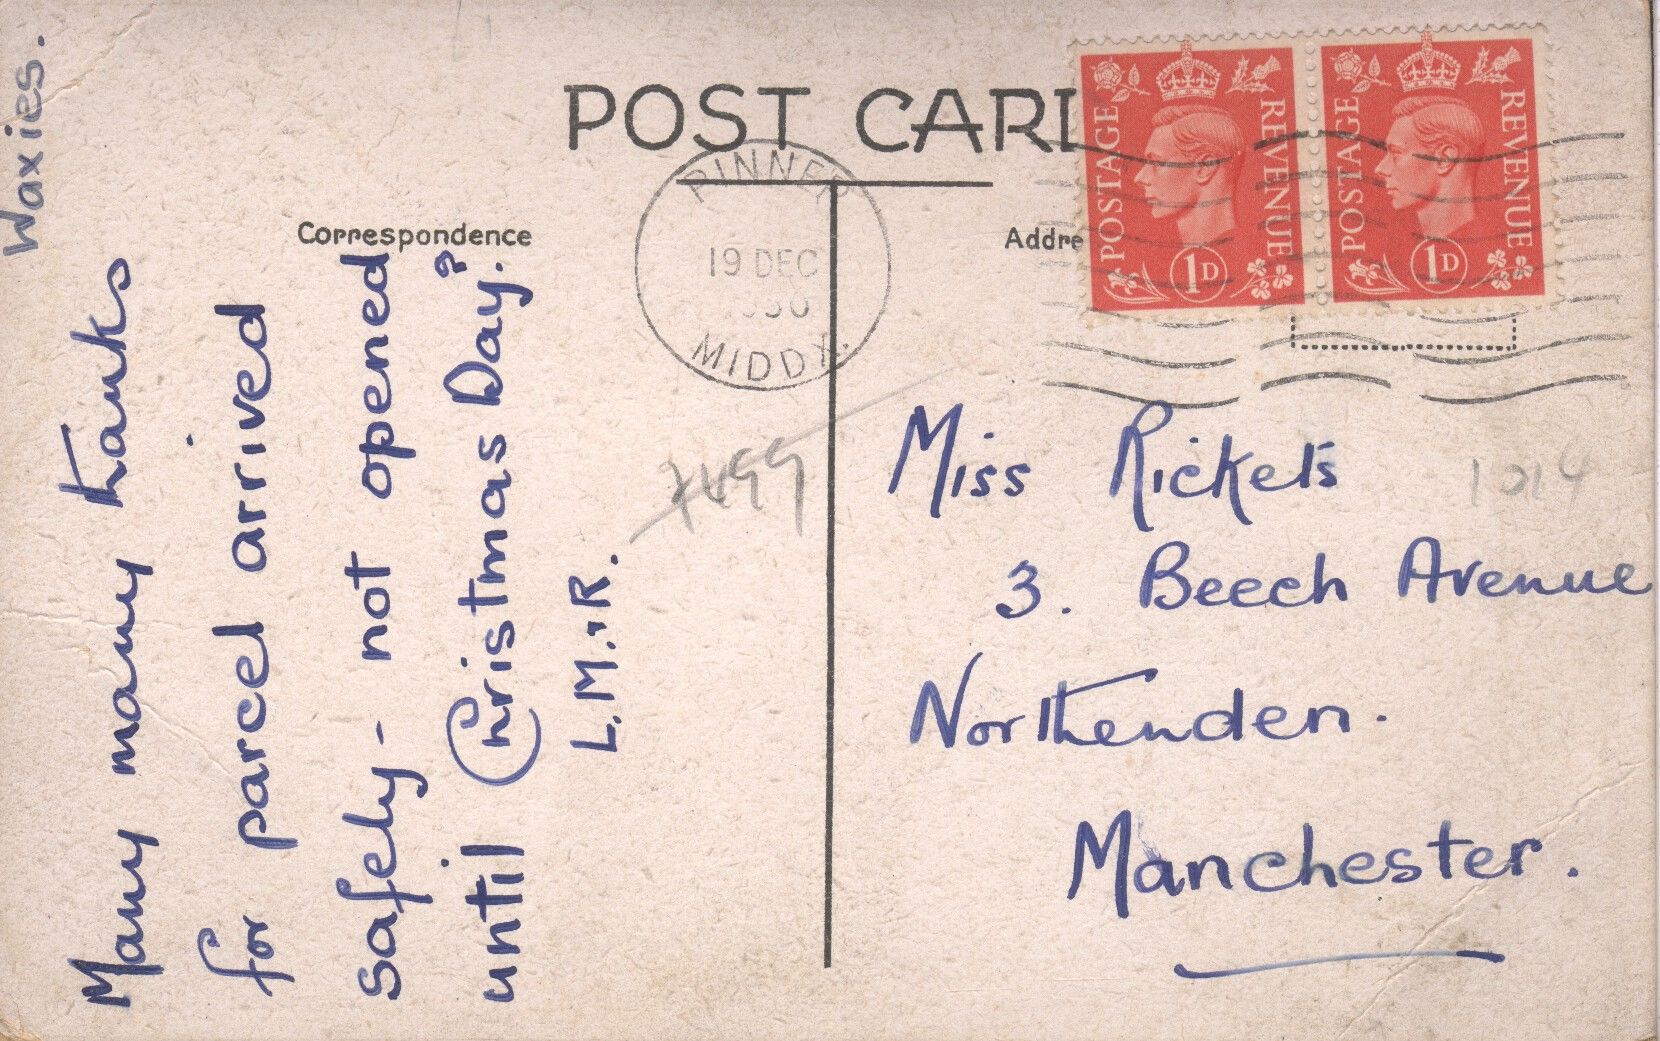 POST CARD
Correspondence
Addre
POSTAGE REVENUE 1D
POSTAGE REVENUE 1D
PINNER
19 DEC
MIDDX.
Waxies.
Many many thanks
for parcel arrived
safely - not opened
until Christmas Day?
L.M.R.
7499
1214
Miss Rickets
3. Beech Avenue
Northenden.
Manchester.